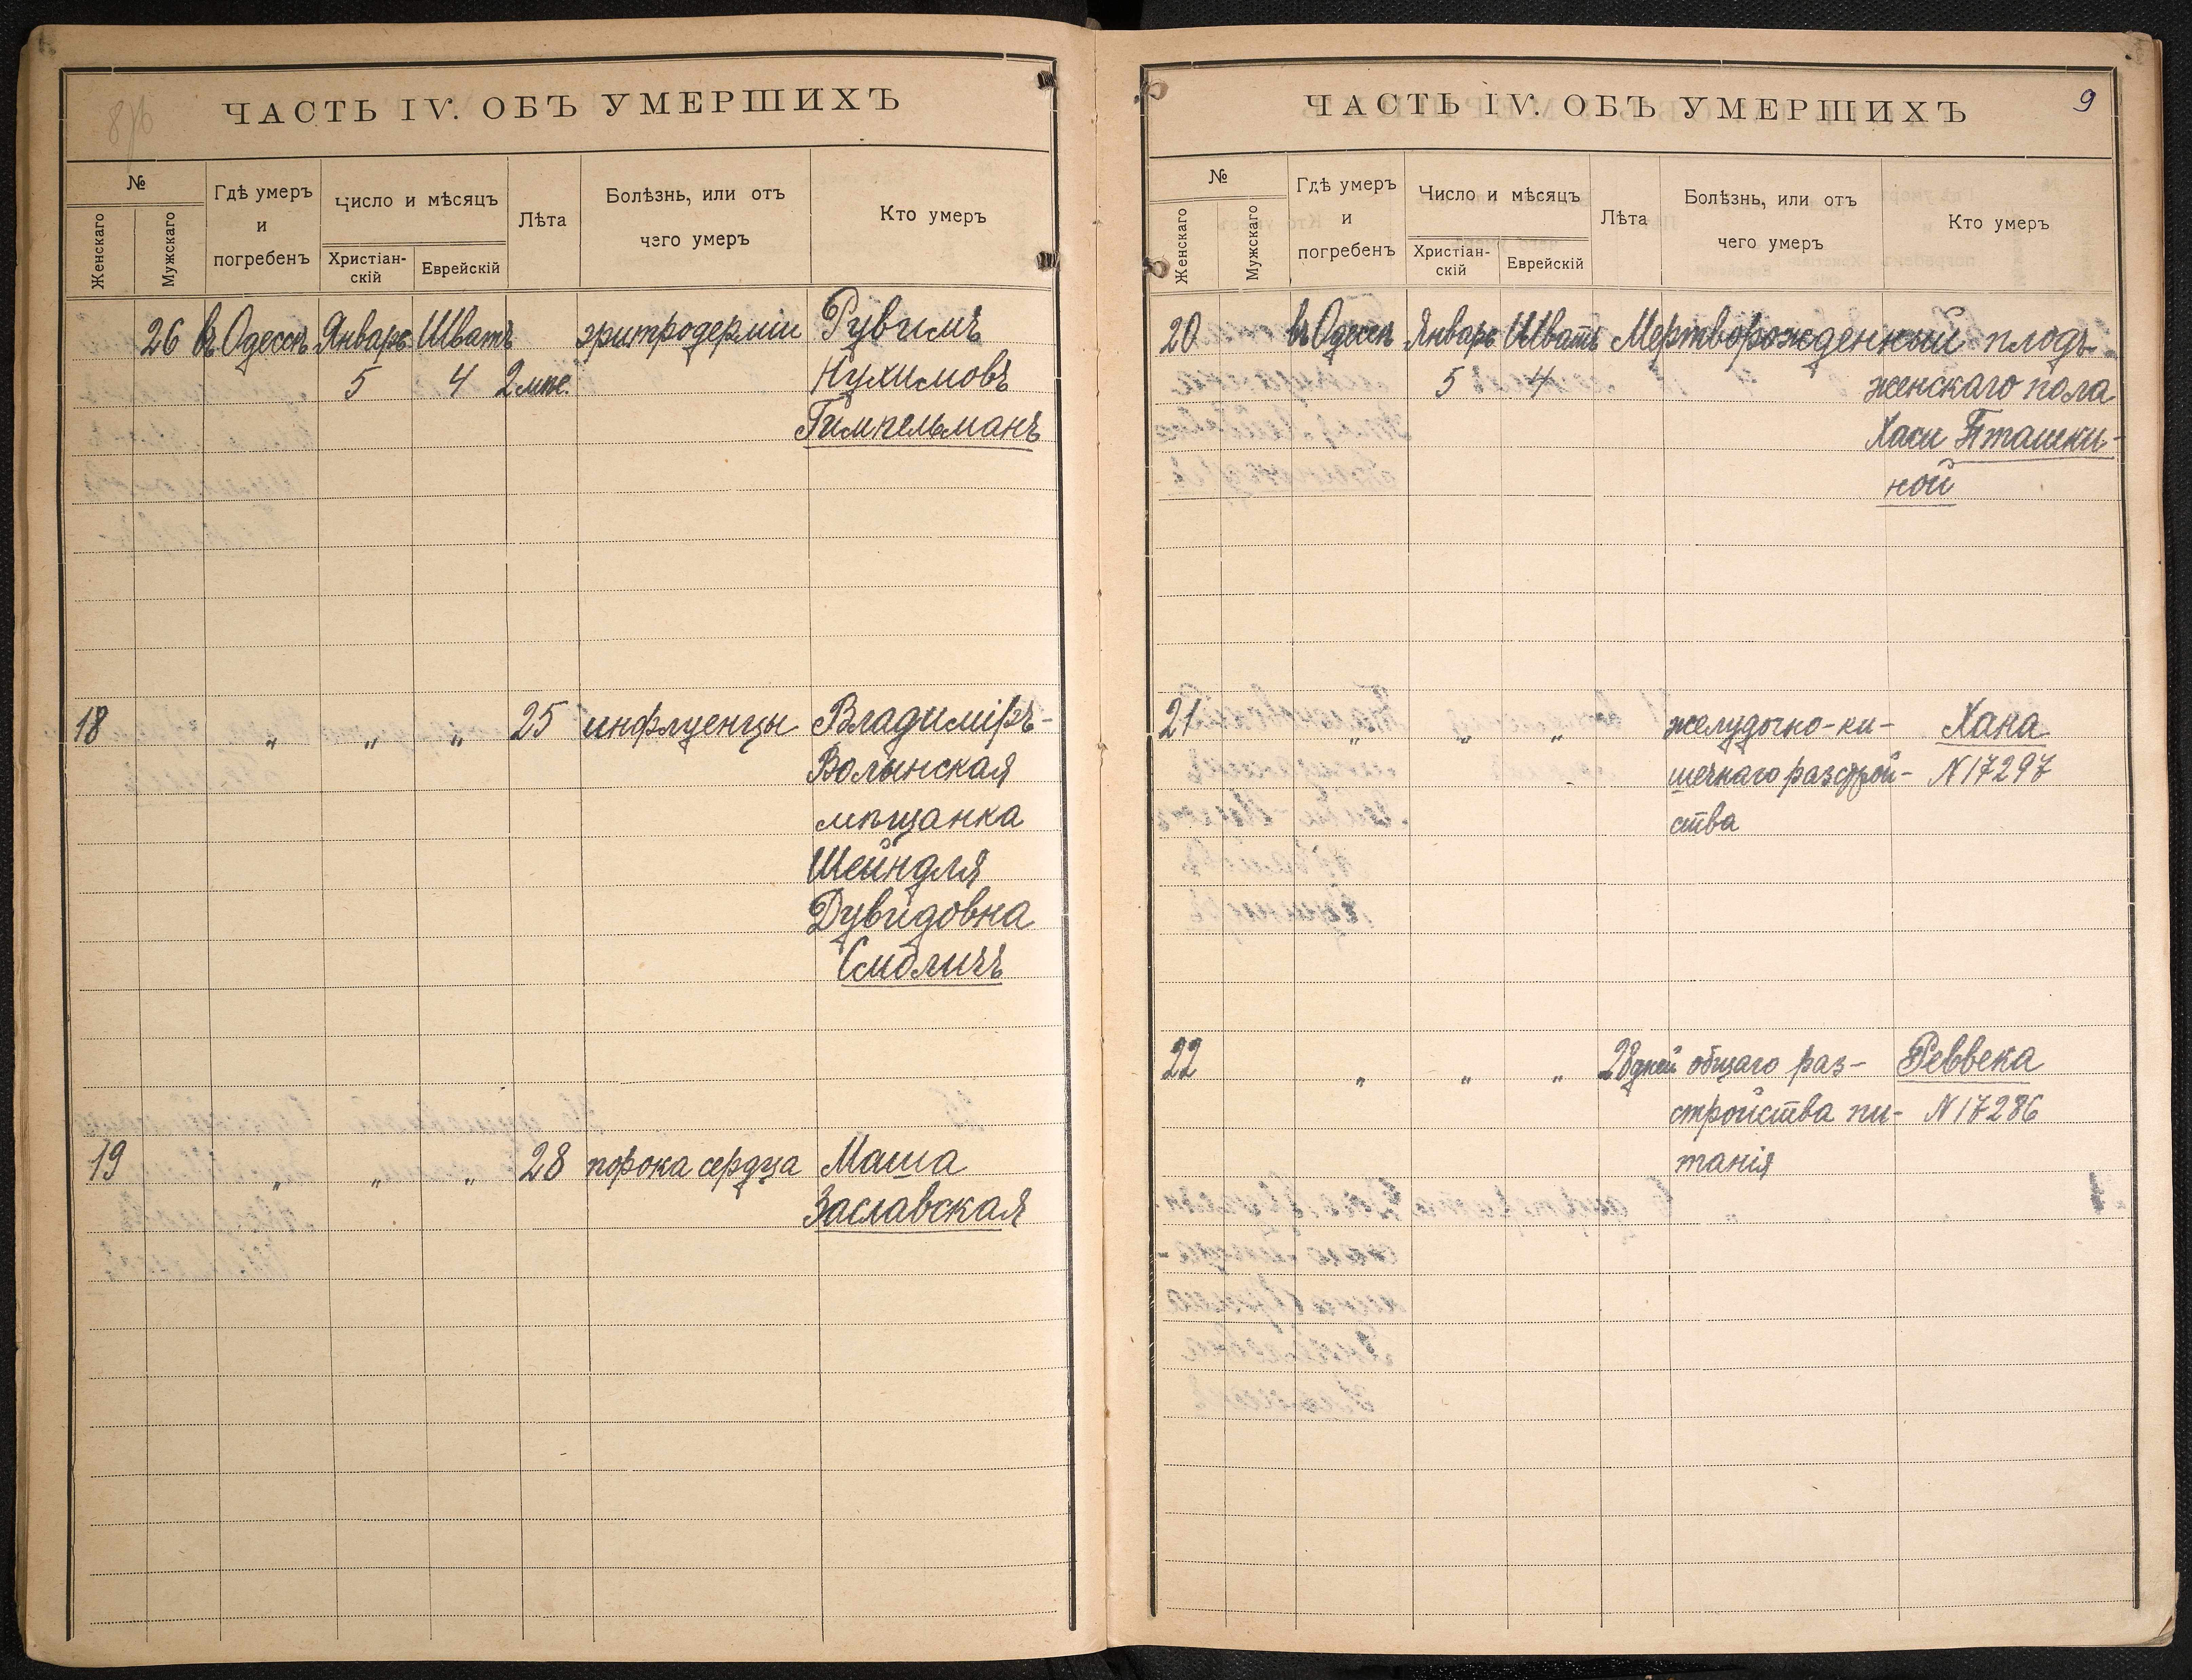 ЧАСТЬ IV. ОБЪ УМЕРШИХЪ
№
Женскаго
Мужскаго
Гдѣ умеръ
и
погребенъ
Число и мѣсяцъ
Христіан-
скій
Еврейскій
Лѣта
Болѣзнь, или отъ
чэго умеръ
Кто умеръ
26 въ Одессѣ Январь Шватъ эритродерміи Рувимъ
5 4 2 мѣс. Нухимовъ
Гимпельманъ
18 " " " 25 инфлуенцы Владиміръ-
Волынская
мѣщанка
Шейндля
Дувидовна
Смоличъ
19 " " " 28 порока сердца Маша
Заславская
ЧАСТЬ IV. ОБЪ УМЕРШИХЪ
9
№
Женскаго
Мужскаго
Гдѣ умеръ
и
погребенъ
Число и мѣсяцъ
Христіан-
скій
Еврейскій
Лѣта
Болѣзнь, или отъ
чего умеръ
Кто умеръ
20 въ Одессѣ Январь Шватъ Мертворожденный плодъ
5 4 женскаго пола
Хаси Пташки-
ной
21 " " " желудочно-ки- Хана
шечнаго разстрой- N 17297
ства
22 " " " 28 дней общаго раз- Реввека
стройства пи- N 17286
танія